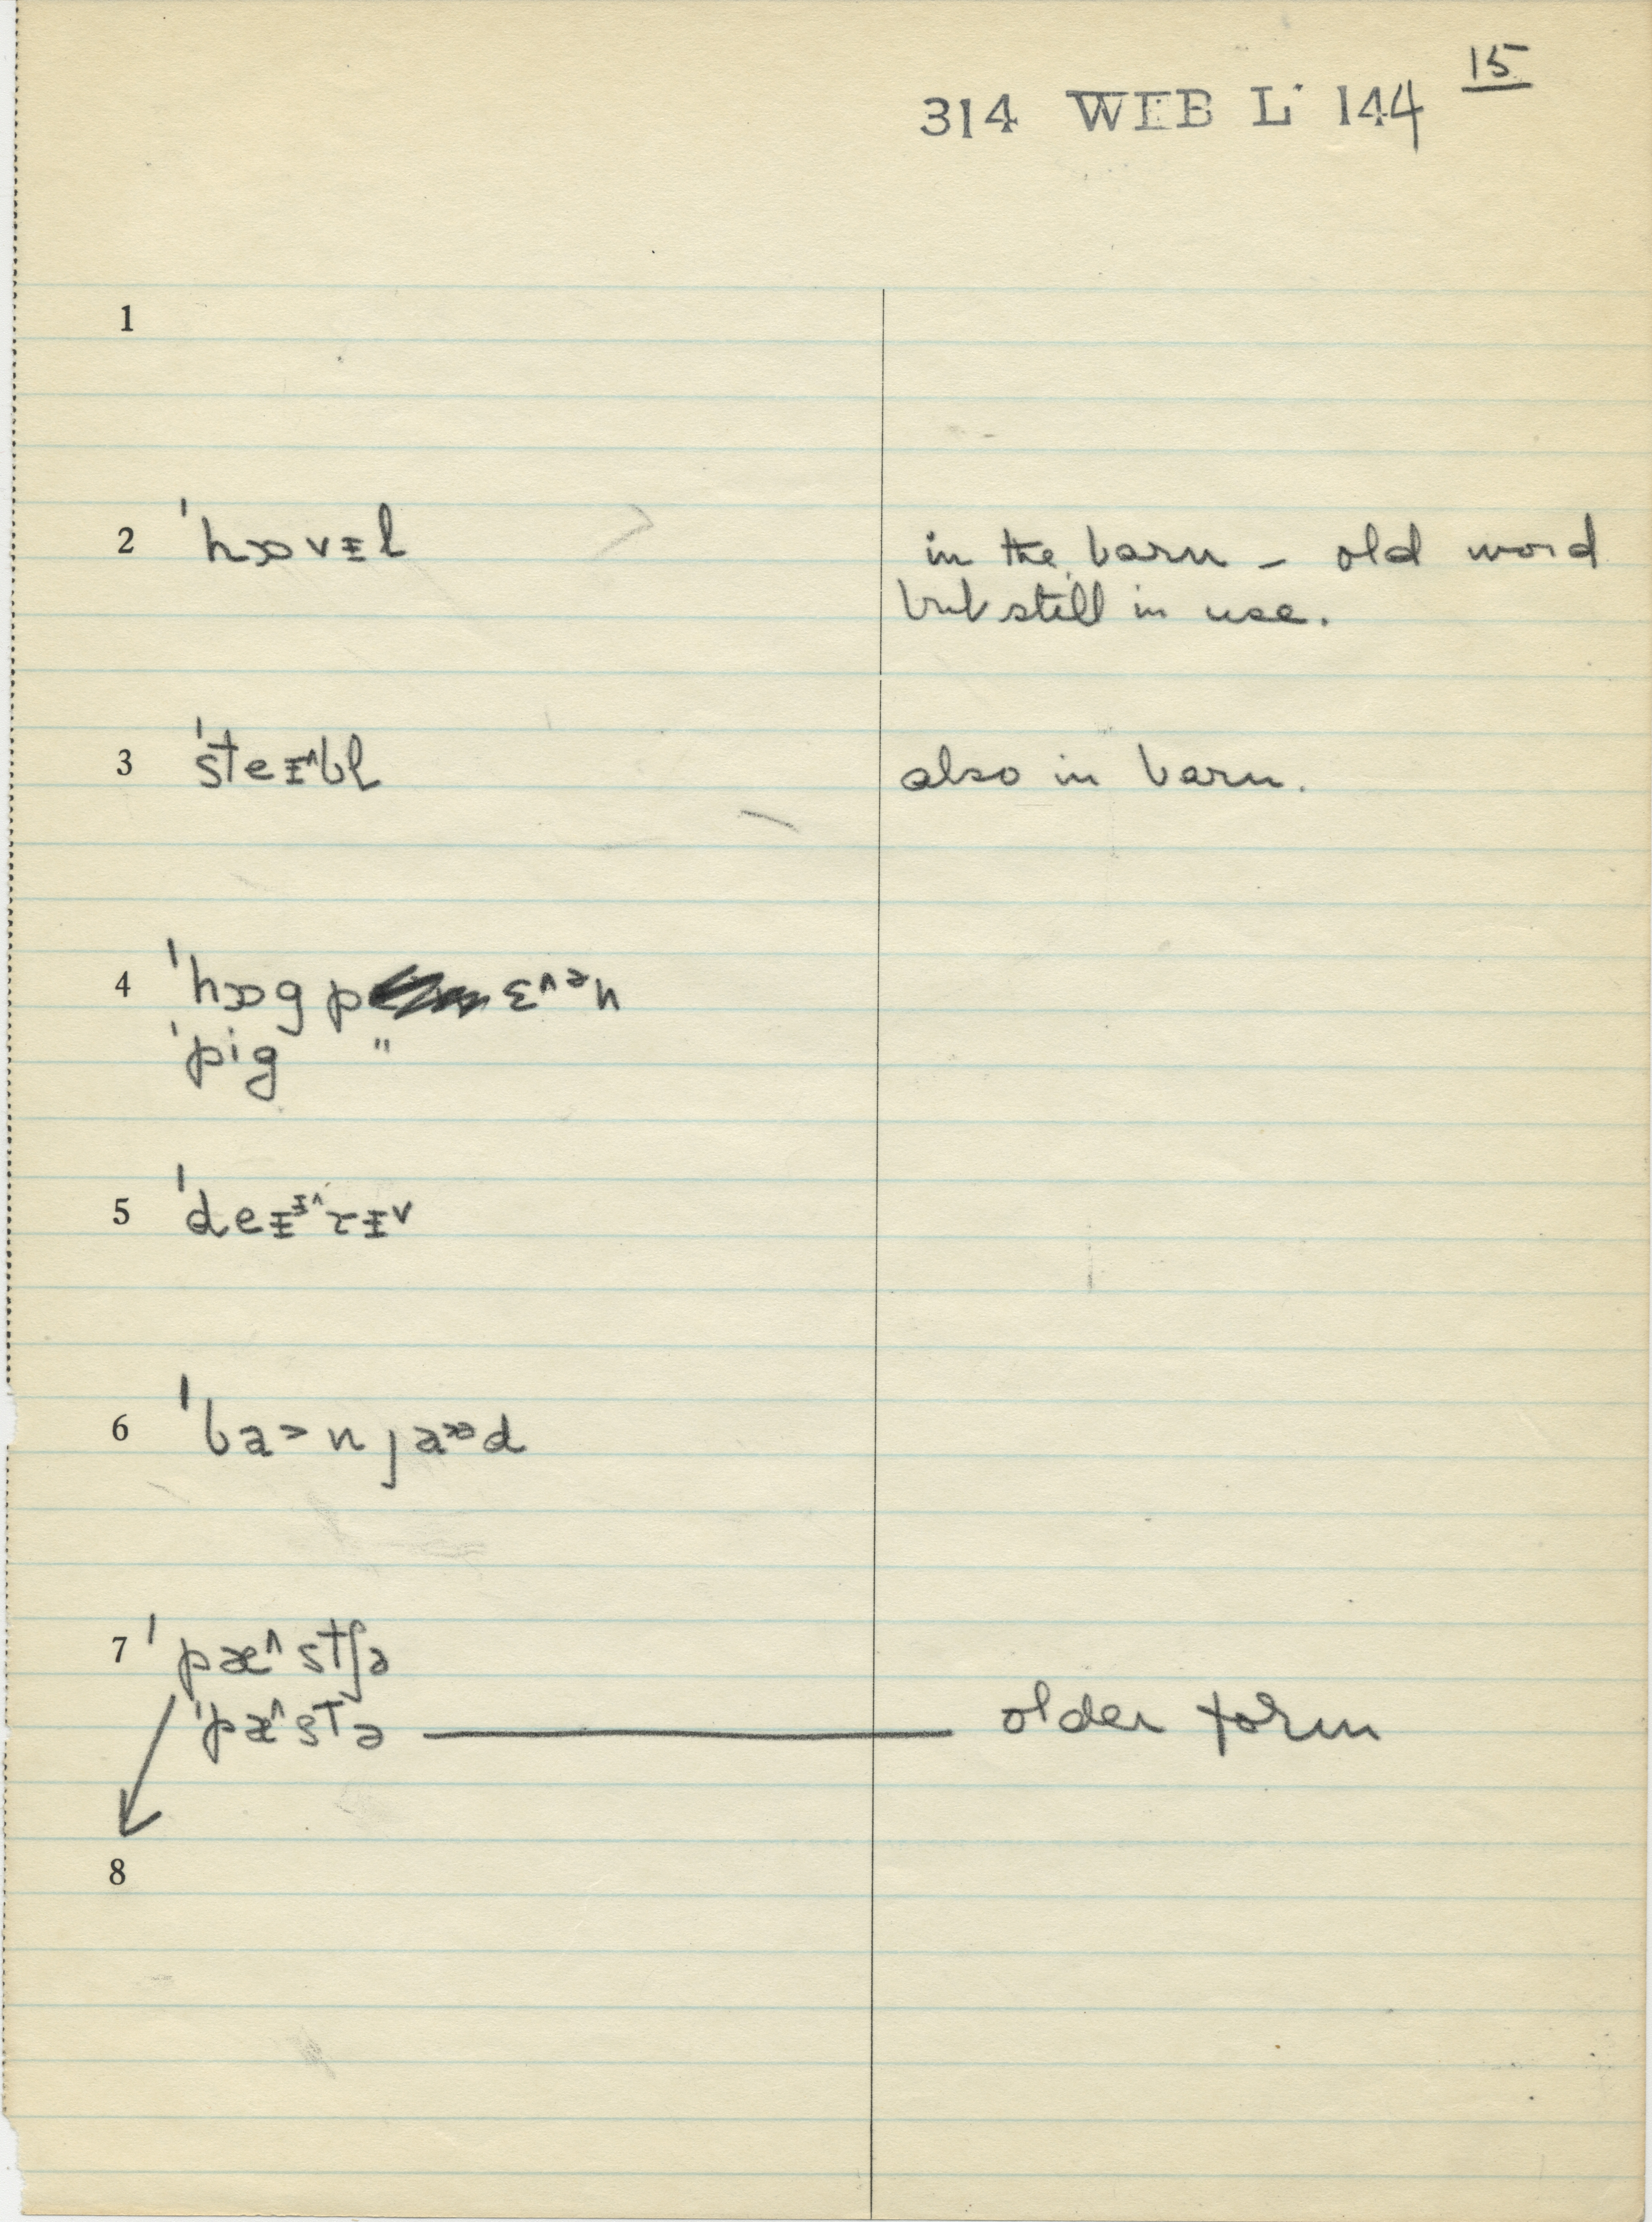 15
314 WEB L 144
1
2 ˈhɒvɪl in the barn – old word
but still in use.
3 ˈsteɪ^bl̩ also in barn.
4 ˈhɒg p ɛ^ən
ˈpig "
5 ˈdeɨ^ɨ^ɾɨ˅
6 ˈba>n jaɒd
7 ˈpæ^stʃə
ˈpæ^stə older form
8